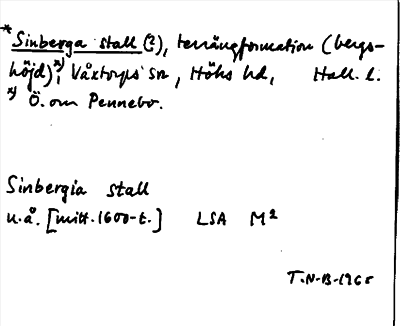 * Sinberga stall (?), terrängformation (bergs-
höjd)x), Våxtorps sn, Höks hd, Hall. l.
x) Ö. om Pennebo.
Sinbergia stall
u.å. [mitt. 1600-t.] LSA M2
T.N-B-1965